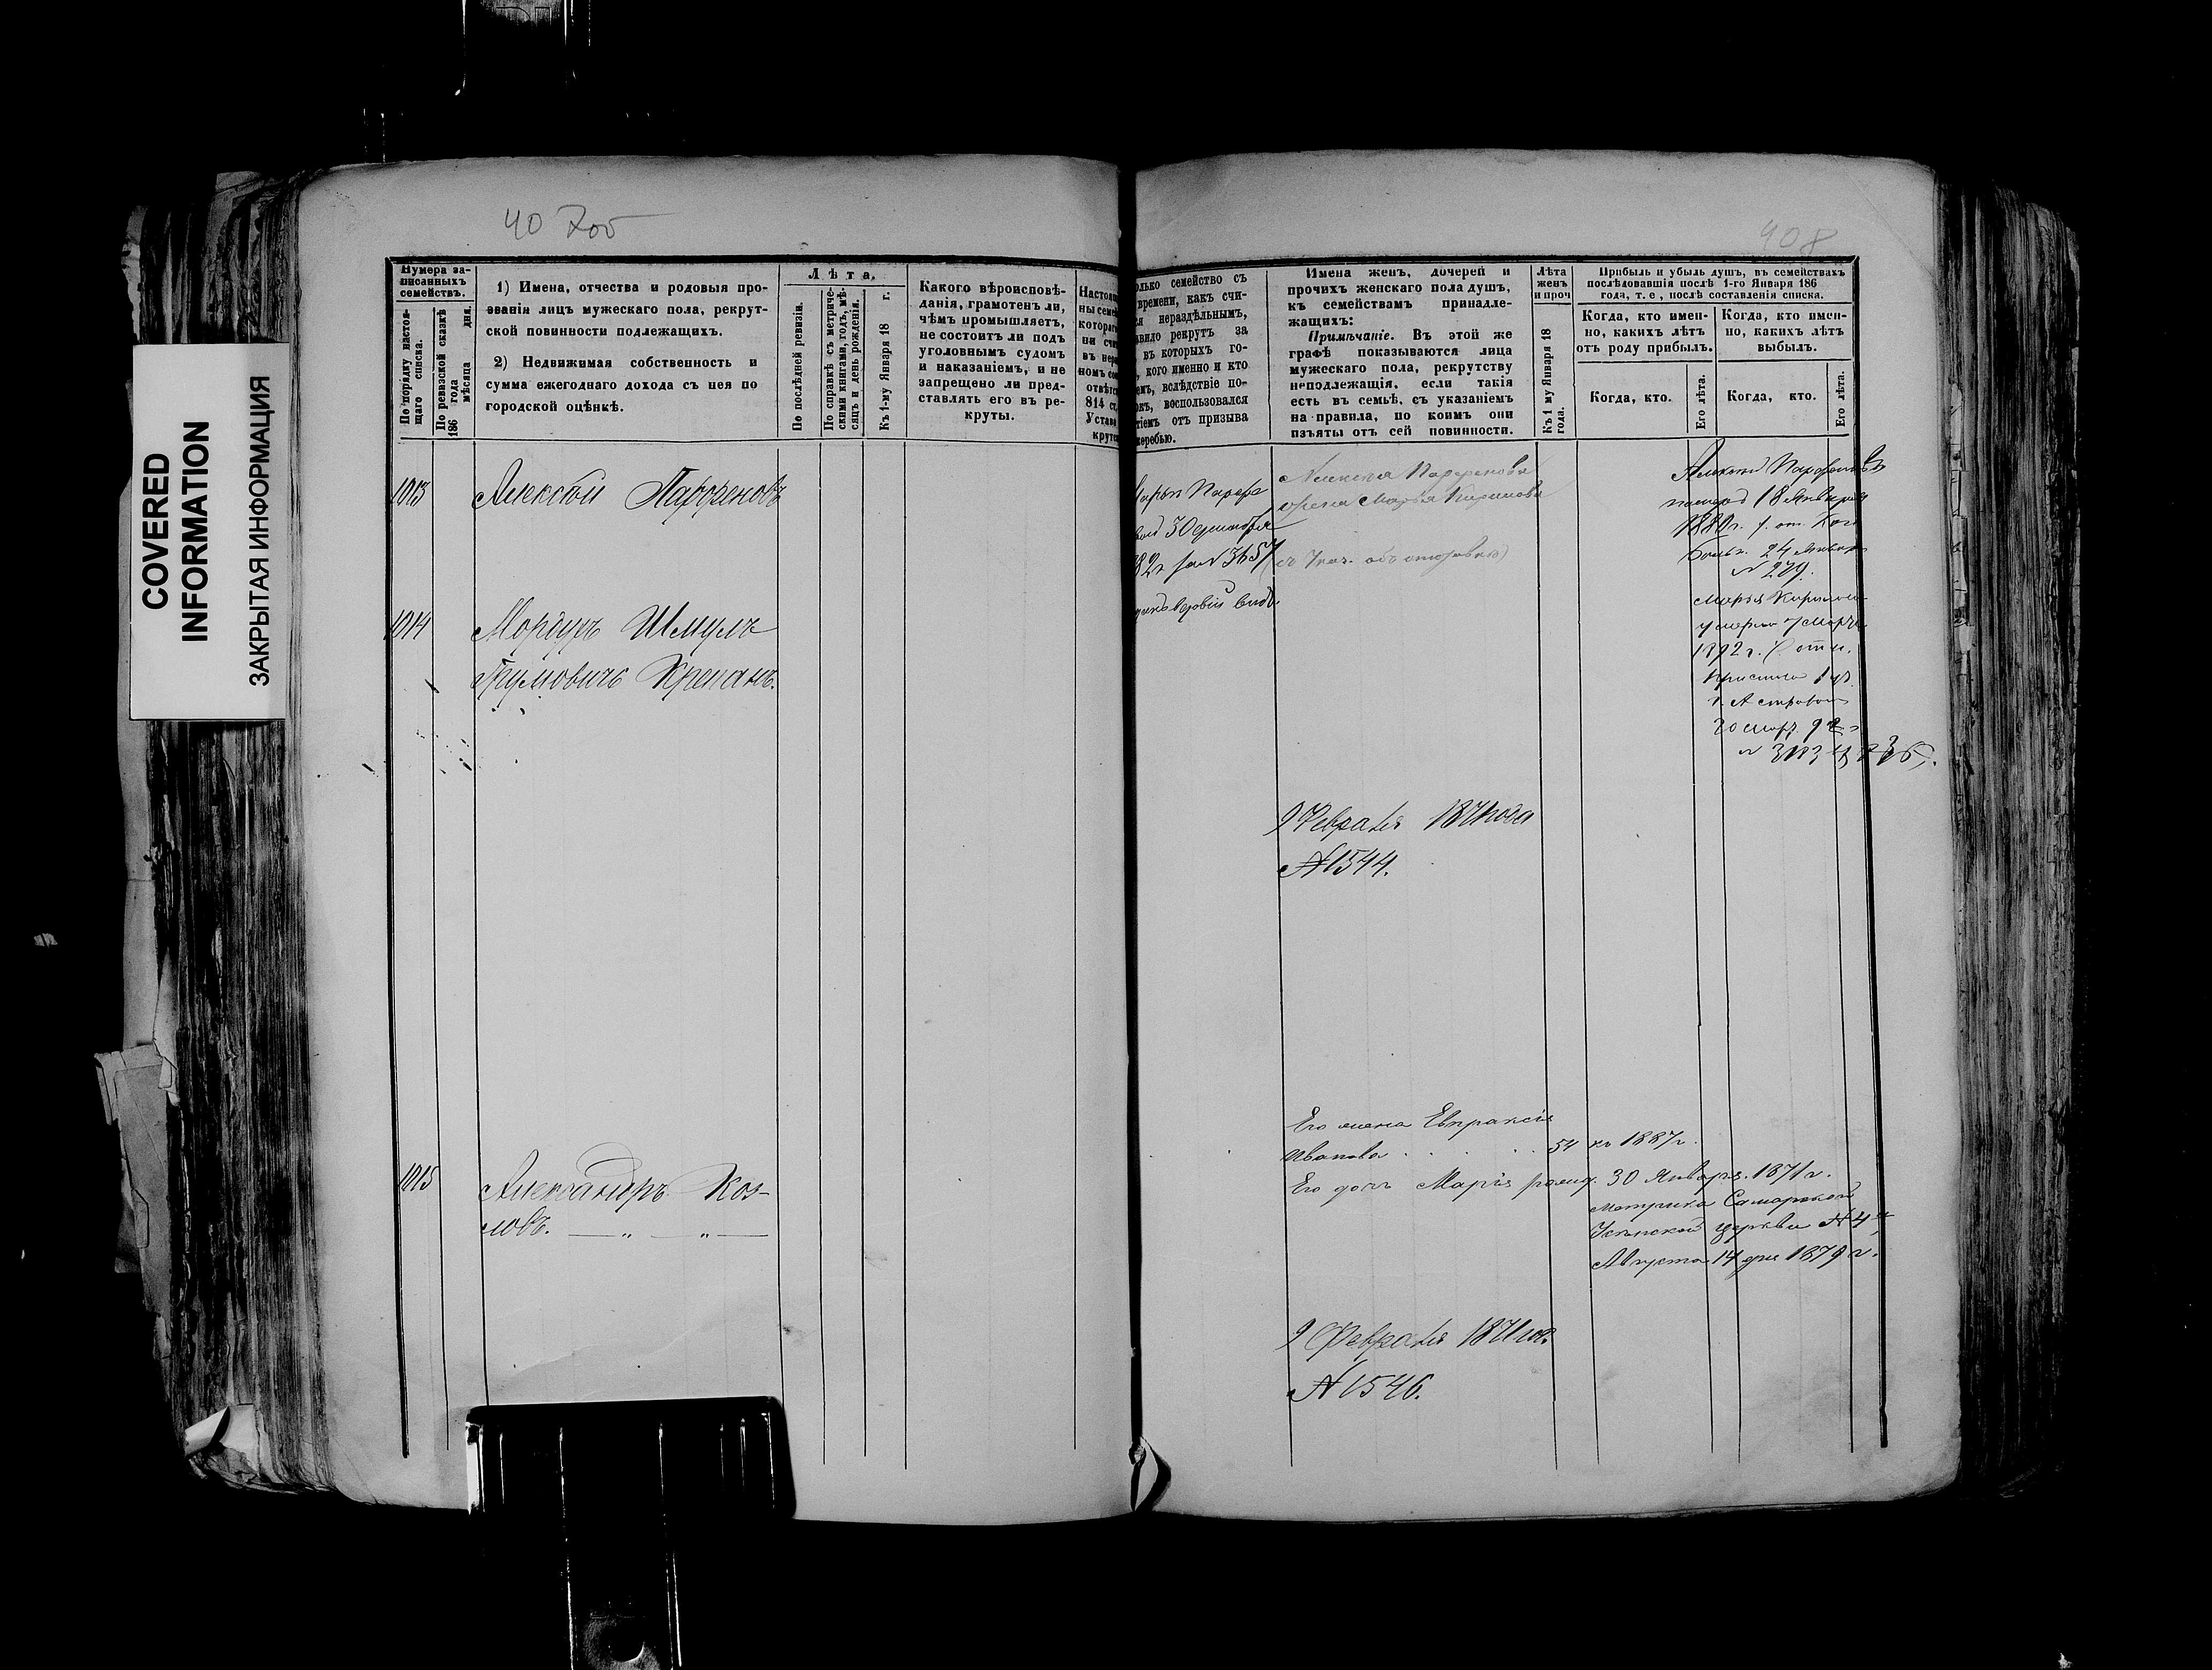 COVERED
INFORMATION
ЗАКРЫТАЯ ИНФОРМАЦИЯ
408
Нумера за-
писанныхъ
семействъ.
По порядку настоя-
щаго списка.
По ревизской сказкѣ
186 года мѣсяца дня.
1) Имена, отчества и родовыя про-
званія лицъ мужескаго пола, рекрут-
ской повинности подлежащихъ.
2) Недвижимая собственность и
сумма ежегоднаго дохода съ нея по
городской оцѣнкѣ.
Лѣта.
По послѣдней ревизіи.
По справкѣ съ метриче-
скими книгами, годъ, мѣ-
сяцъ и день рожденія.
Къ 1-му Января 18 г.
Какого вѣроисповѣ-
данія, грамотенъ ли,
чѣмъ промышляетъ,
не состоитъ ли подъ
уголовнымъ судомъ
и наказаніемъ, и не
запрещено ли пред-
ставлять его въ ре-
круты.
Настоящ
ны семей
котораго
ни счит
въ нера
номъ со
отвѣтс
814 ст.
Устава
крутс
олько семейство съ
времени, какъ счи-
ся нераздѣльнымъ,
авило рекрутъ за
въ которыхъ го-
, кого именно и кто
емъ, вслѣдствіе по-
окъ, воспользовался
тіемъ отъ призыва
жеребью.
Имена женъ, дочерей и
прочихъ женскаго пола душъ,
къ семействамъ принадле-
жащихъ:
Примѣчаніе. Въ этой же
графѣ показываются лица
мужескаго пола, рекрутству
неподлежащія, если такія
есть въ семьѣ, съ указаніемъ
на правила, по коимъ они
изъяты отъ сей повинности.
Лѣта
женъ
и проч
Къ 1 му Января 18
года.
Прибыль и убыль душъ, въ семействахъ
послѣдовавшія послѣ 1-го Января 186
года, т. е , послѣ составленія списка.
Когда, кто имен-
но, какихъ лѣтъ
отъ роду прибылъ.
Когда, кто имен-
но, какихъ лѣтъ
выбылъ.
Когда, кто.
Его лѣта.
Когда, кто.
Его лѣта.
1013
Алексѣй Парфеновъ
жена Марья Кирилова
18 Января
24 Января
N 279.
Марья Кирилова
умерла 7 марта
1892 г.
1014
Мордухъ Шмулъ
9 Февраля 1871 года
N 1544.
1015
Александръ Коз-
ловъ. — „ — „ —
Его жена Евпраксія
Иванова . . . . . 54 къ 1887 г.
Его дочь Марія рожд. 30 Января 1871 г.
метрика Самарской
церкви N 4
Августа 14 дня 1879 г.
9 Февраля 1871 год.
N 1546.